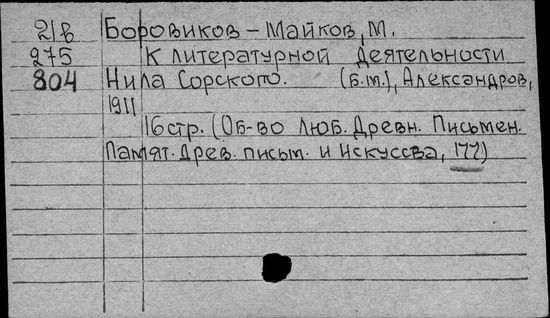 21в Боровиков - Майков, М.
275 К литературной деятельности
804 Нила Сорского. (б.т.), Александров,
1911
16стр. (Об-во люб. Древн. Письмен.
Памят. древ. письм. и искуссва, 177)